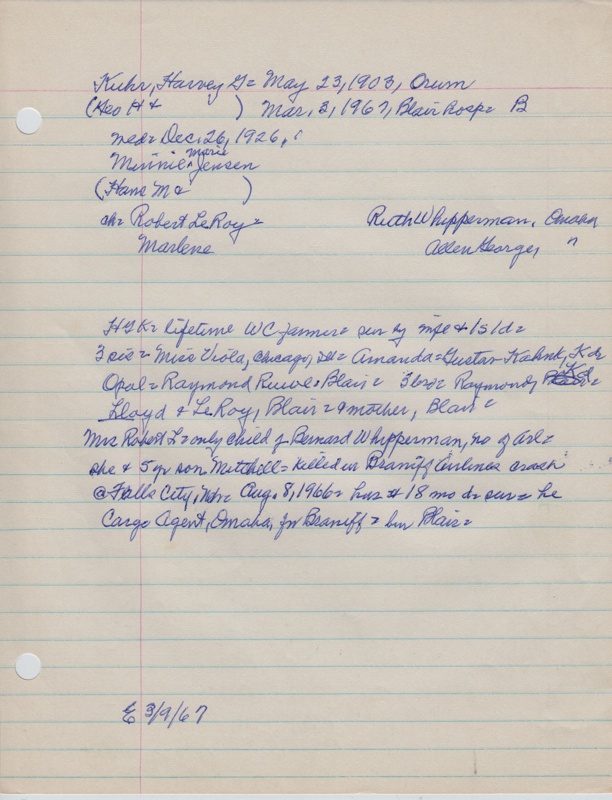 Kuhr, Harvey G = May 23, 1903, Orum
(Geo H & ) Mar, 3, 1967, Blair Hosp = B
med = Dec. 26, 1926, "
Minnie Marie Jensen
(Hans M & )
ch = Robert LeRoy = Ruth Whipperman, Omaha
Marlene Allen George, "
HGK = lifetime WC farmer = sur by wife & 1s 1d =
3 sis = Miss Viola, Chicago, Ill = Amanda = Gustav Kahnk, Kd
Opal = Raymond Ruwe = Blair = 3 bro = Raymond, Kd =
Lloyd & LeRoy, Blair = & mother, Blair =
Mrs Robert L = only child of Bernard Whipperman, no of Arl =
she & 5 yr son "Mitchell = killed in Braniff Airlines crash
@ Falls City, Neb = Aug. 8, 1966 = hus & 18 mo d = sur = he
Cargo Agent, Omaha, for Braniff = bur Blair =
E 3/9/67